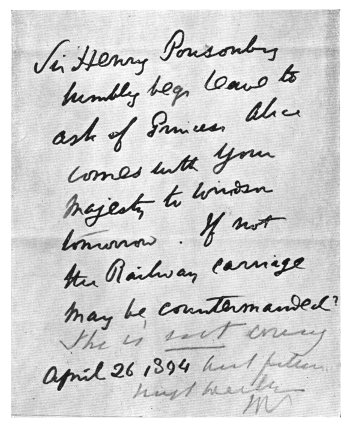 Sir Henry Ponsonby
humbly begs leave to
ask if Princess Alice
comes with Your
Majesty to Windsor
tomorrow. If not
the Railway carriage
may be countermanded?
She is not coming
April 26 1894 but
next week